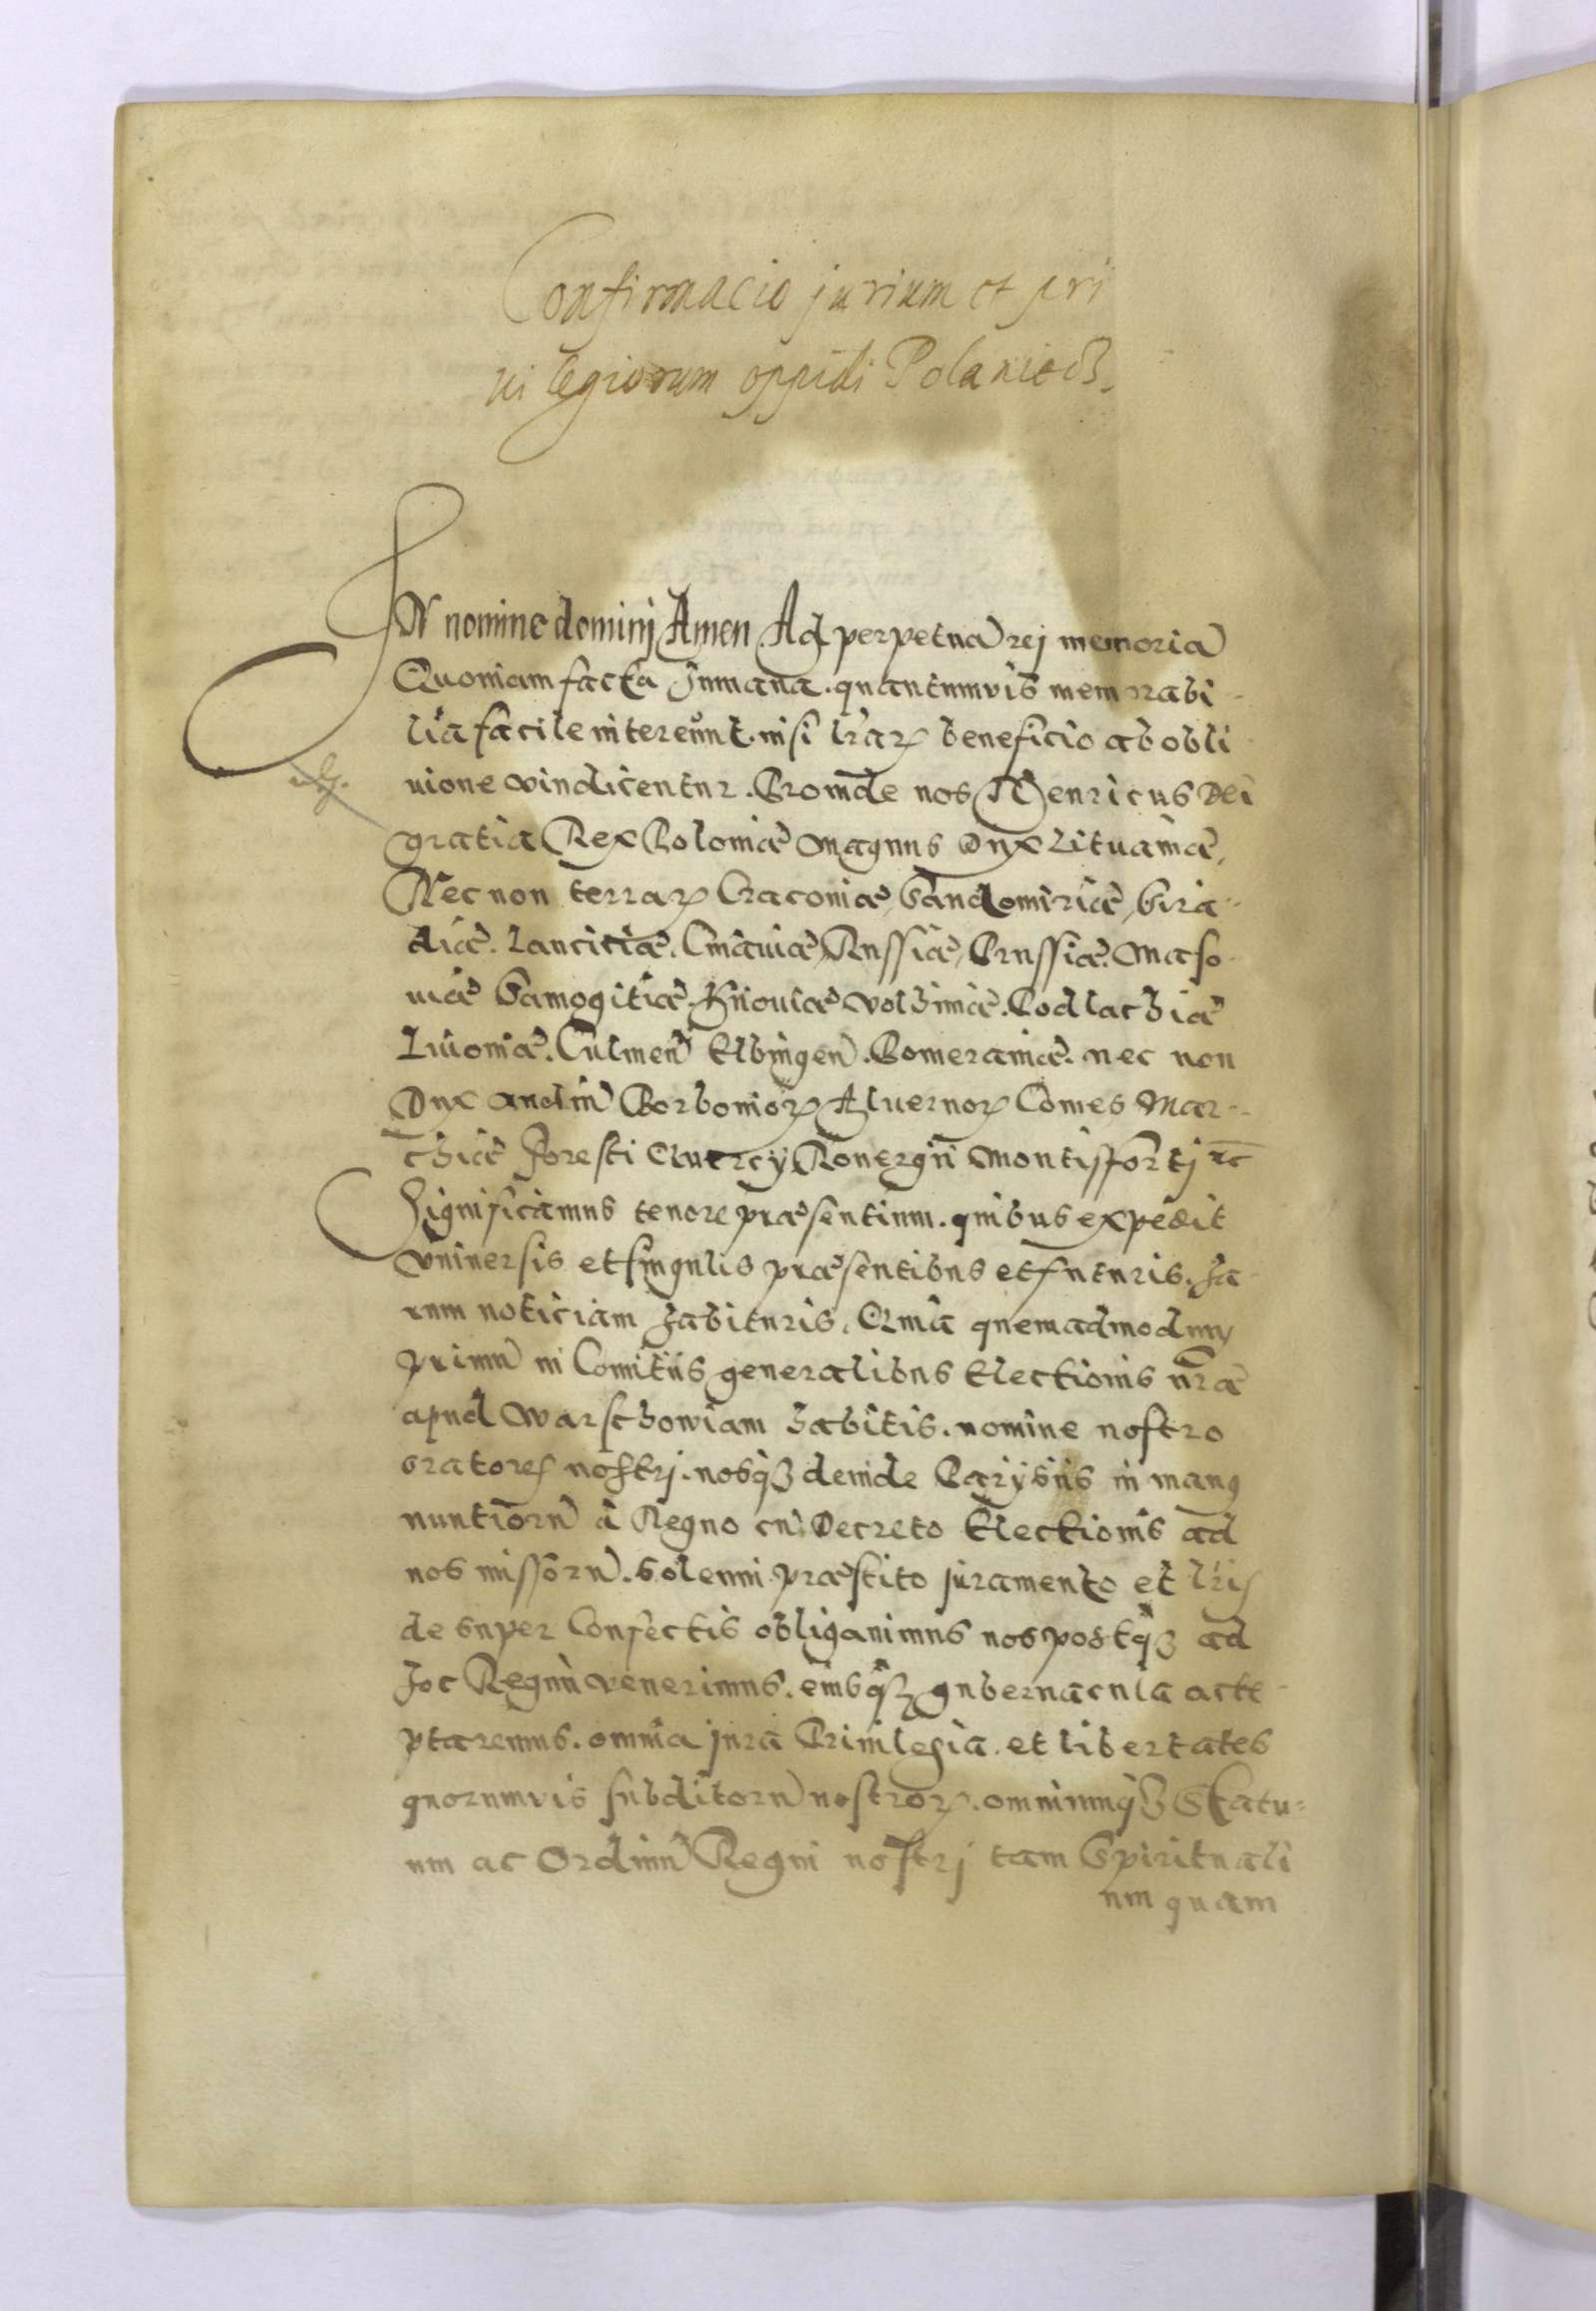 Confirmacio jurium et pri
uilegiorum oppidi Polaniecz.
IN nomine dominj Amen Ad perpetuã rej memoriã
Quoniam facta humana. quantumuis memorabi-
lia facile intereunt. nisi lrãꝝ beneficio ab obli
uione vindicentur. Proinde nos Henricus Dei
gratia Rex Poloniæ Magnus Dux Lituaniæ,
Nec non terraꝝ Cracouiæ, Sandomiriæ, Sira-
diæ. Lanciciæ. Cuiauiæ, Russiæ, Prussiæ. Maso-
uiæ Samogitiæ. Kijouiæ Volhiniæ. Podlachiæ
Liuoniæ. Culmeñ Elbingeñ. Pomeraniæ. nec non
Dux Andiũ Borbonioꝝ Aluernoꝝ Comes Mar-
chiæ Foresti Quercÿ Rouergii Montisfortj ꝛc̃
Significamus tenore præsentium. quibus expedit
vniuersis et singulis præsentibus et futuris. ha-
rum noticiam habituris. Quia quemadmodum
primũ in Comitiis generalibus Electionis nr̃æ
apud Warschowiam habitis. nomine nostro
oratores nostrj. nosqꝫ deinde Parÿsiis in manꝰ
nuntiorũ à Regno cũ Decreto Electionis ad
nos missorũ. solenni præstito juramento et lr̃is
de super Confectis obligauimus nos postqꝫ ad
hoc Regnũ venerimus. eiusqꝫ gubernacula acce-
ptaremus. omnia jura Priuilegia. et libertates
quorumuis subditorũ nostroꝝ. omniumqꝫ Statu=
um ac Ordinũ Regni nostrj tam Spirituali
um quam